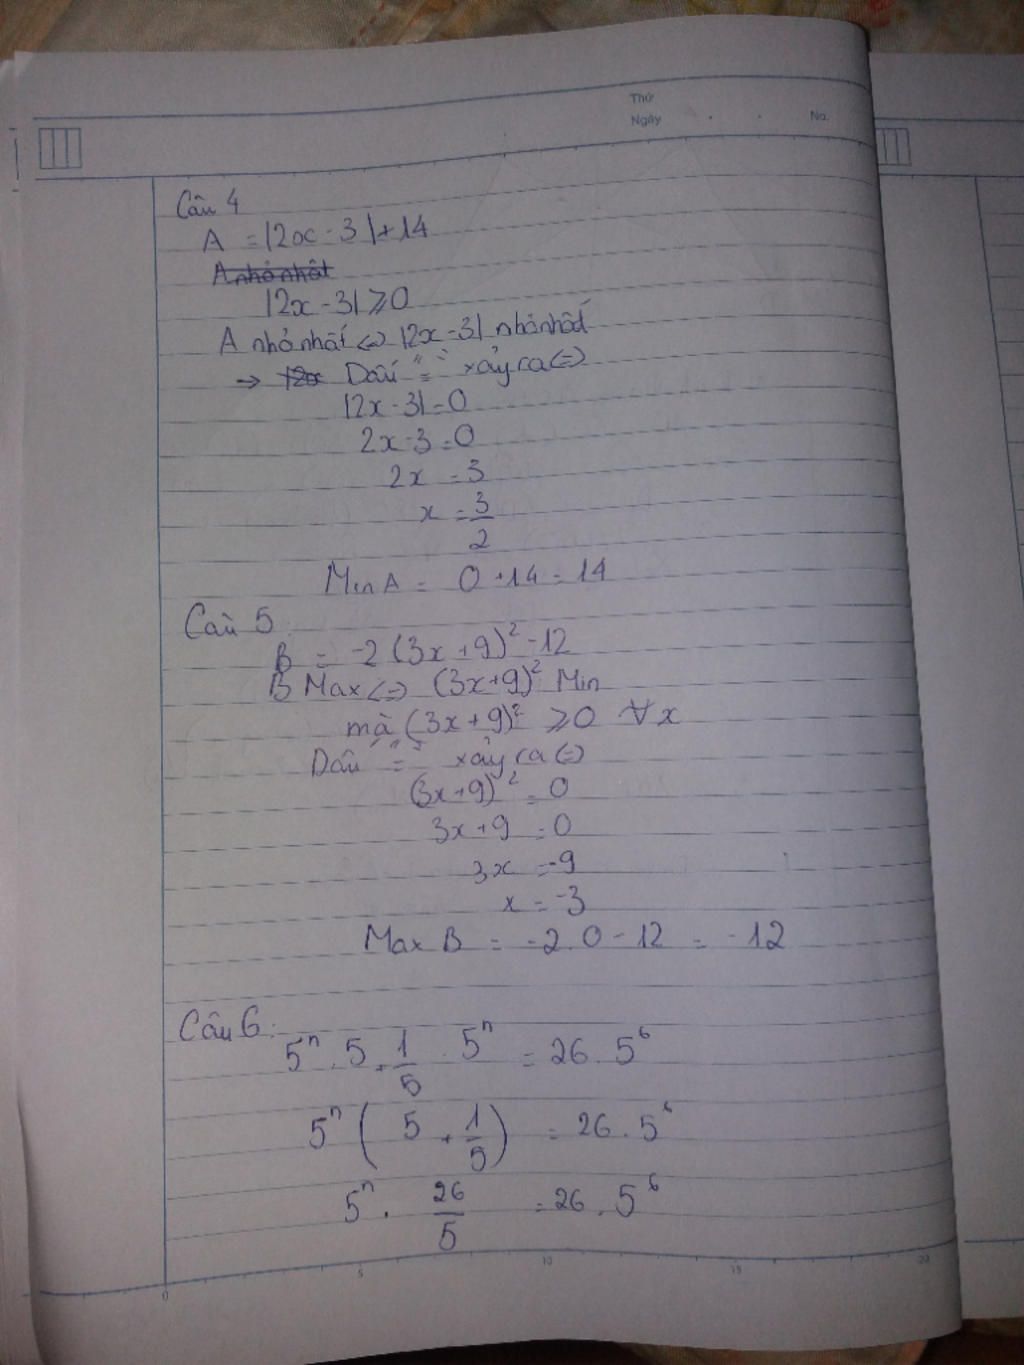 Thứ
Ngày . . No.
Câu 4
A = |2x - 3| + 14
A nhỏ nhất
|2x - 3| ⩾ 0
A nhỏ nhất <=> |2x - 3| nhỏ nhất
→ |2x Dấu "=" xảy ra <=>
|2x - 3| = 0
2x - 3 = 0
2x = 3
x = 3/2
Min A = 0 + 14 = 14
Câu 5
B = -2 (3x + 9)² - 12
B Max <=> (3x+9)² Min
mà (3x + 9)² ⩾ 0 ∀x
Dấu "=" xảy ra <=>
(3x+9)² = 0
3x + 9 = 0
3x = -9
x = -3
Max B = -2. 0 - 12 = -12
Câu 6:
5ⁿ . 5 + 1/5 . 5ⁿ = 26 . 5⁶
5ⁿ ( 5 + 1/5 ) = 26 . 5⁶
5ⁿ . 26/5 = 26 . 5⁶
0 5 10 15 20